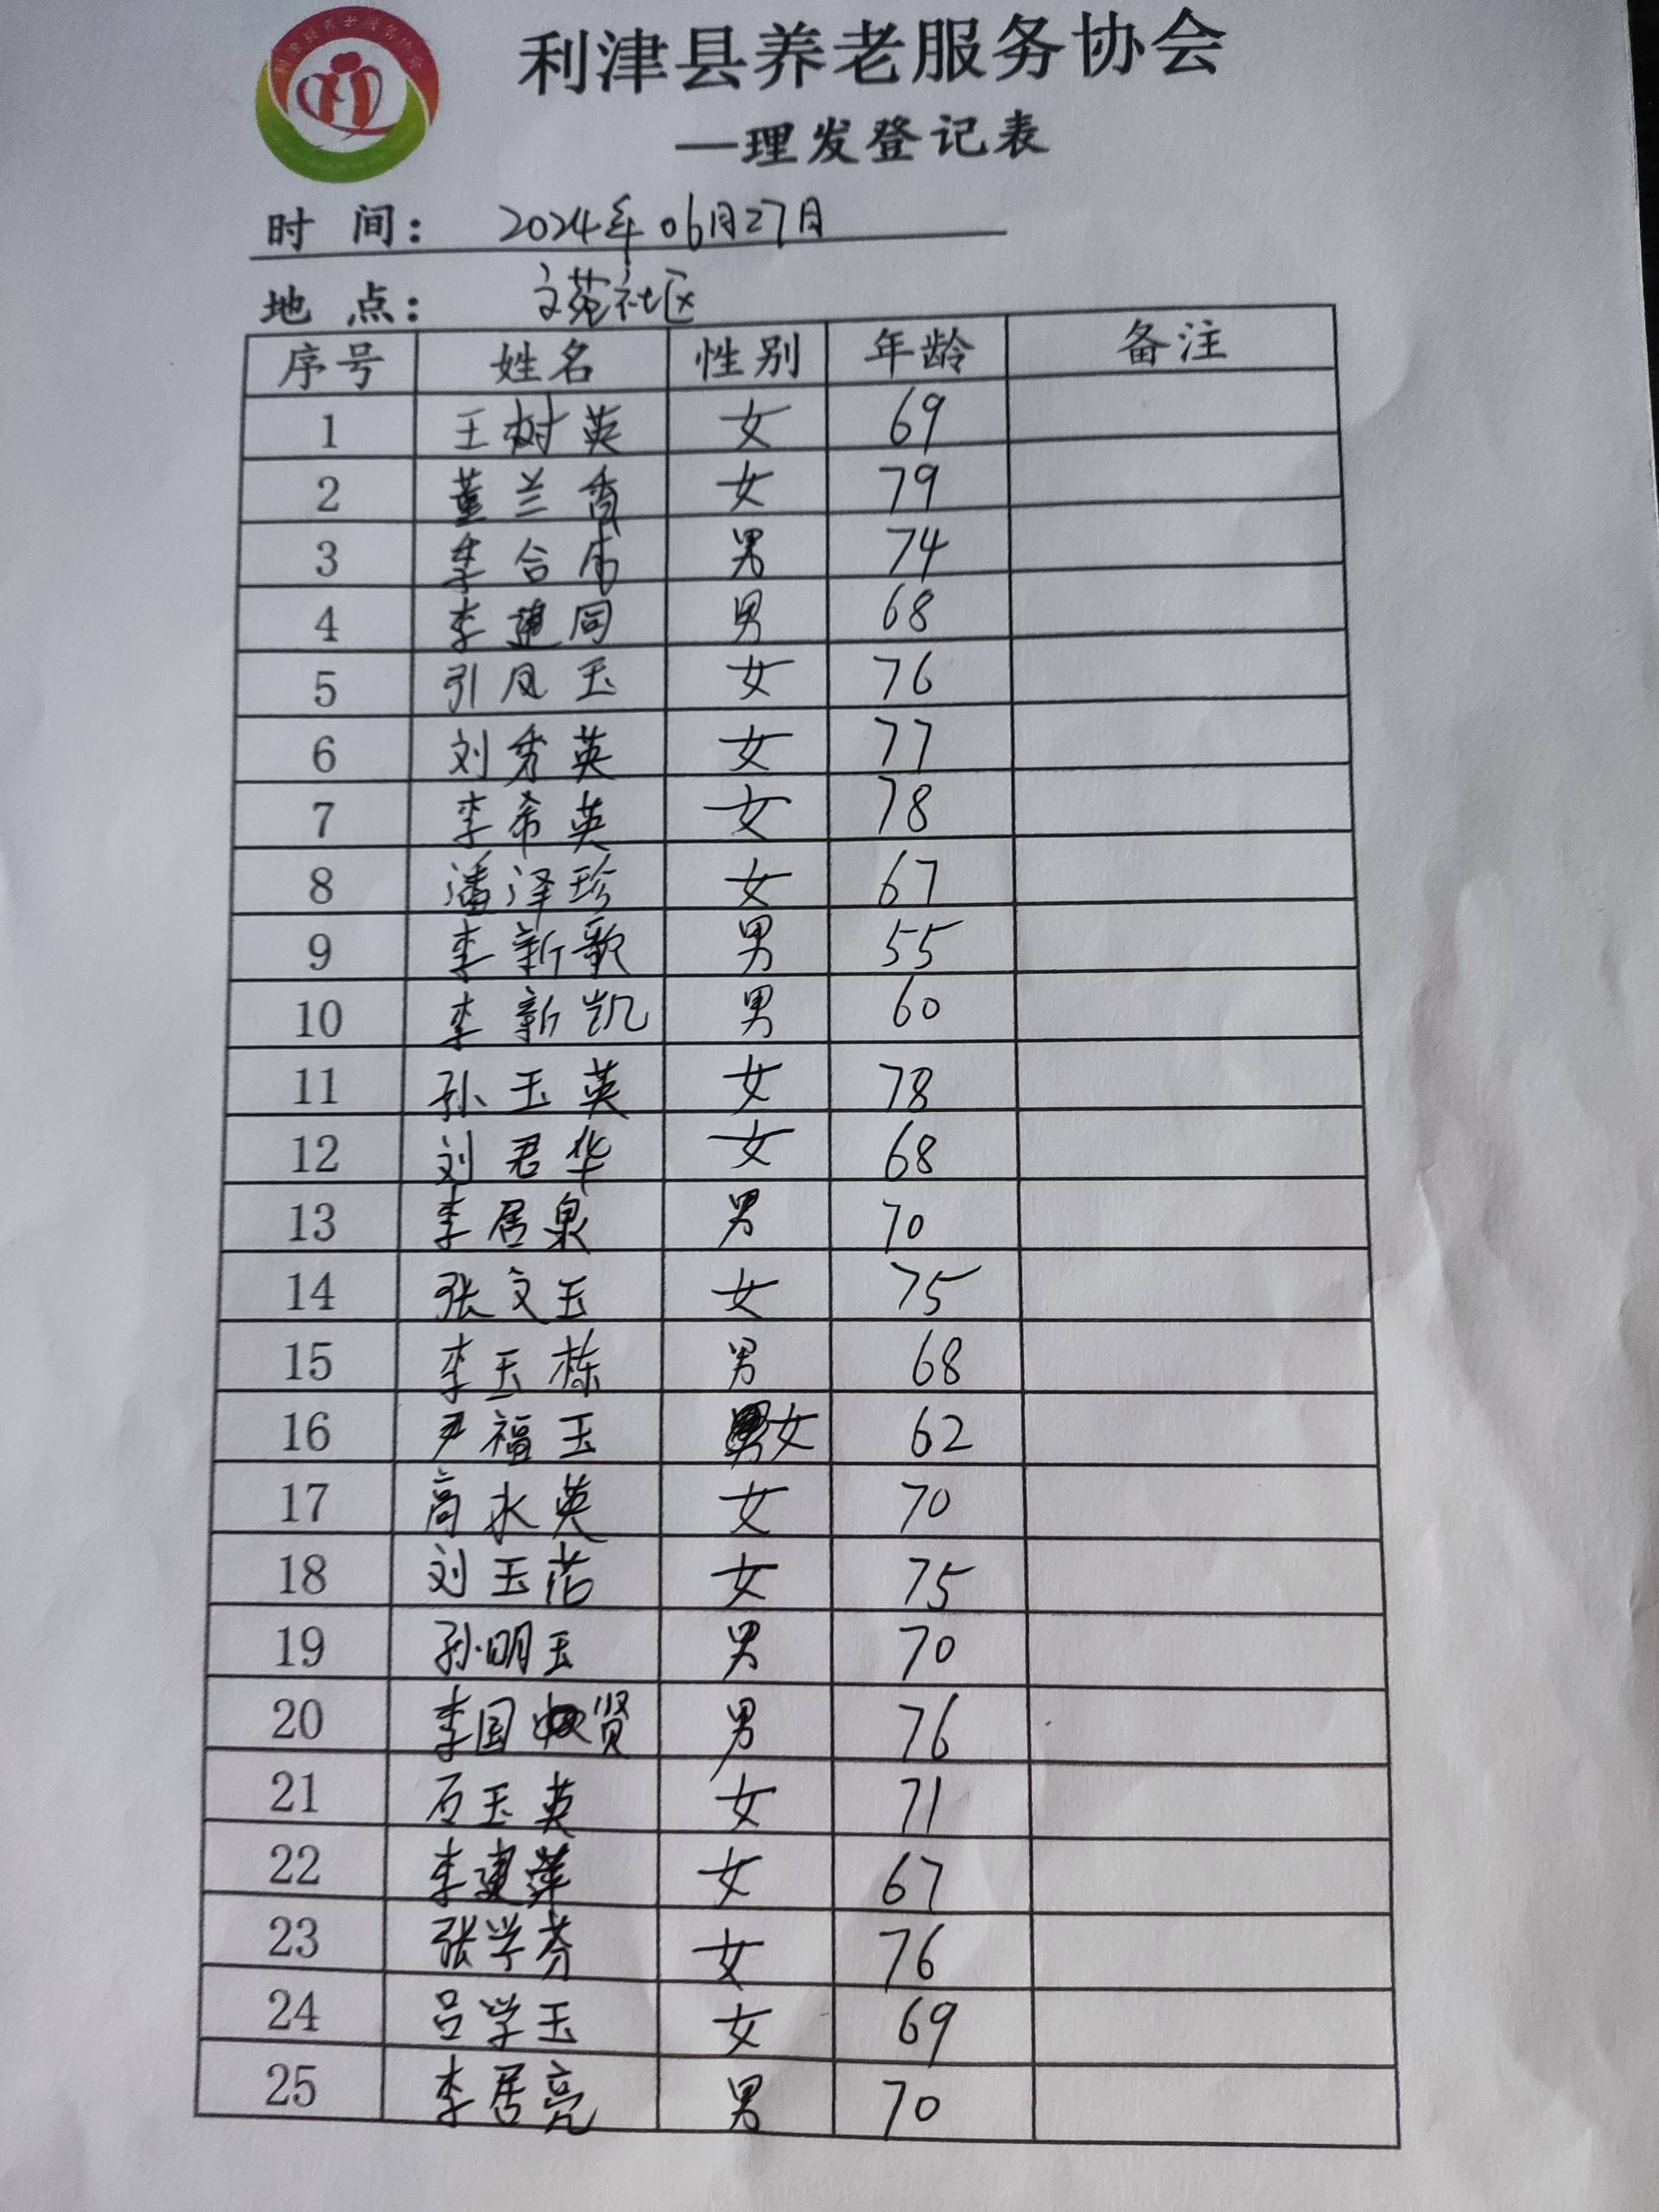 利津县养老服务协会
—理发登记表
时 间： 2024年06月27月
地 点： 文苑社区
序号 姓名 性别 年龄 备注
1 王树英 女 69
2 董兰香 女 79
3 李合 男 74
4 李建同 男 68
5 引凤玉 女 76
6 刘秀英 女 77
7 李希英 女 78
8 潘泽珍 女 67
9 李新歌 男 55
10 李新凯 男 60
11 孙玉英 女 78
12 刘君华 女 68
13 李居泉 男 70
14 张文玉 女 75
15 李玉栋 男 68
16 尹福玉 女 62
17 高水英 女 70
18 刘玉 女 75
19 孙明玉 男 70
20 李国贤 男 76
21 石玉英 女 71
22 李建萍 女 67
23 张学芬 女 76
24 吕学玉 女 69
25 李居亮 男 70